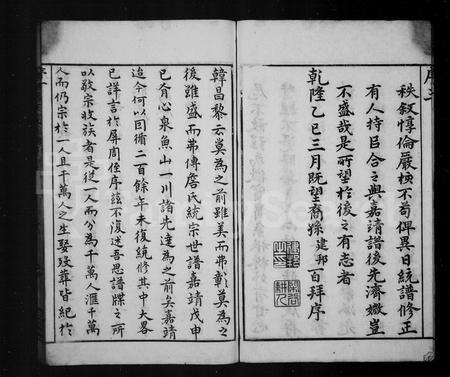 秩叙惇倫嚴核不苟俾異日統譜修正
有人持旦合之與嘉靖譜後先濟媺豈
不盛哉是所望於後之有志者
乾隆乙巳三月既望裔孫建邦百拜序
韓昌黎云莫為之前雖美而弗彰莫為之
後雖盛而弗傳詹氏統宗世譜嘉靖戊申
已有心泉魚山一川諸先達為之前矣嘉靖
迨今何以因循二百餘年未復統修其中大畧
已詳言於屏周侄序茲不復述吾思譜牒之所
以敬宗收族者是從一人而分為千萬人滙千萬
人而仍宗於一人且千萬人之生娶歿葬皆紀於